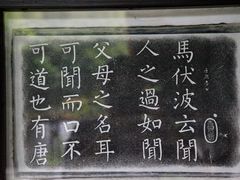 馬伏波云聞
人之過如聞
父母之名耳
可聞而口不
可道也有唐